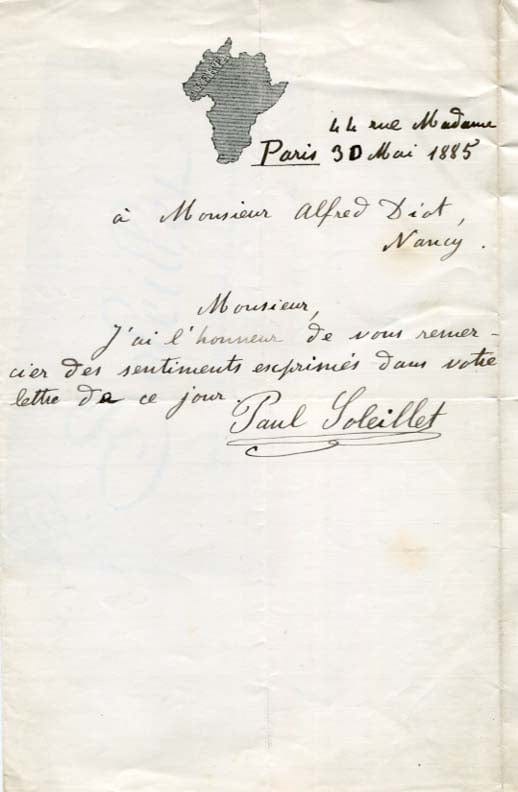 44 rue Madame
Paris 30 Mai 1885
à Monsieur Alfred Diot,
Nancy.
Monsieur,
J'ai l'honneur de vous remer-
cier des sentiments exprimés dans votre
lettre de ce jour.
Paul Soleillet